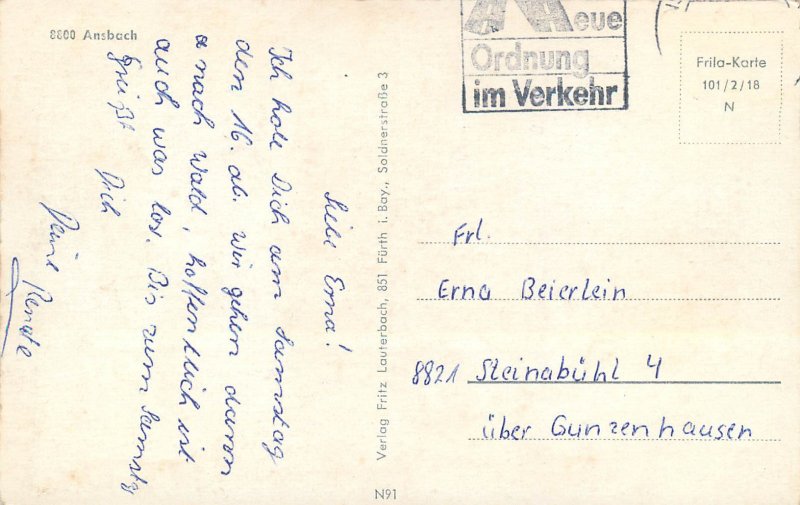 8800 Ansbach
Liebe Erna!
Ich hole Dich am Samstag
den 16. ab. Wir gehen dann
nach Wald, hoffentlich ist
auch was los. Bis zum Samstg
grüßt Dich
Deine Renate
Verlag Fritz Lauterbach, 851 Fürth i. Bay., Soldnerstraße 3
N91
Neue
Ordnung
im Verkehr
Frila-Karte
101/2/18
N
Frl.
Erna Beierlein
8821 Steinabühl 4
über Gunzenhausen